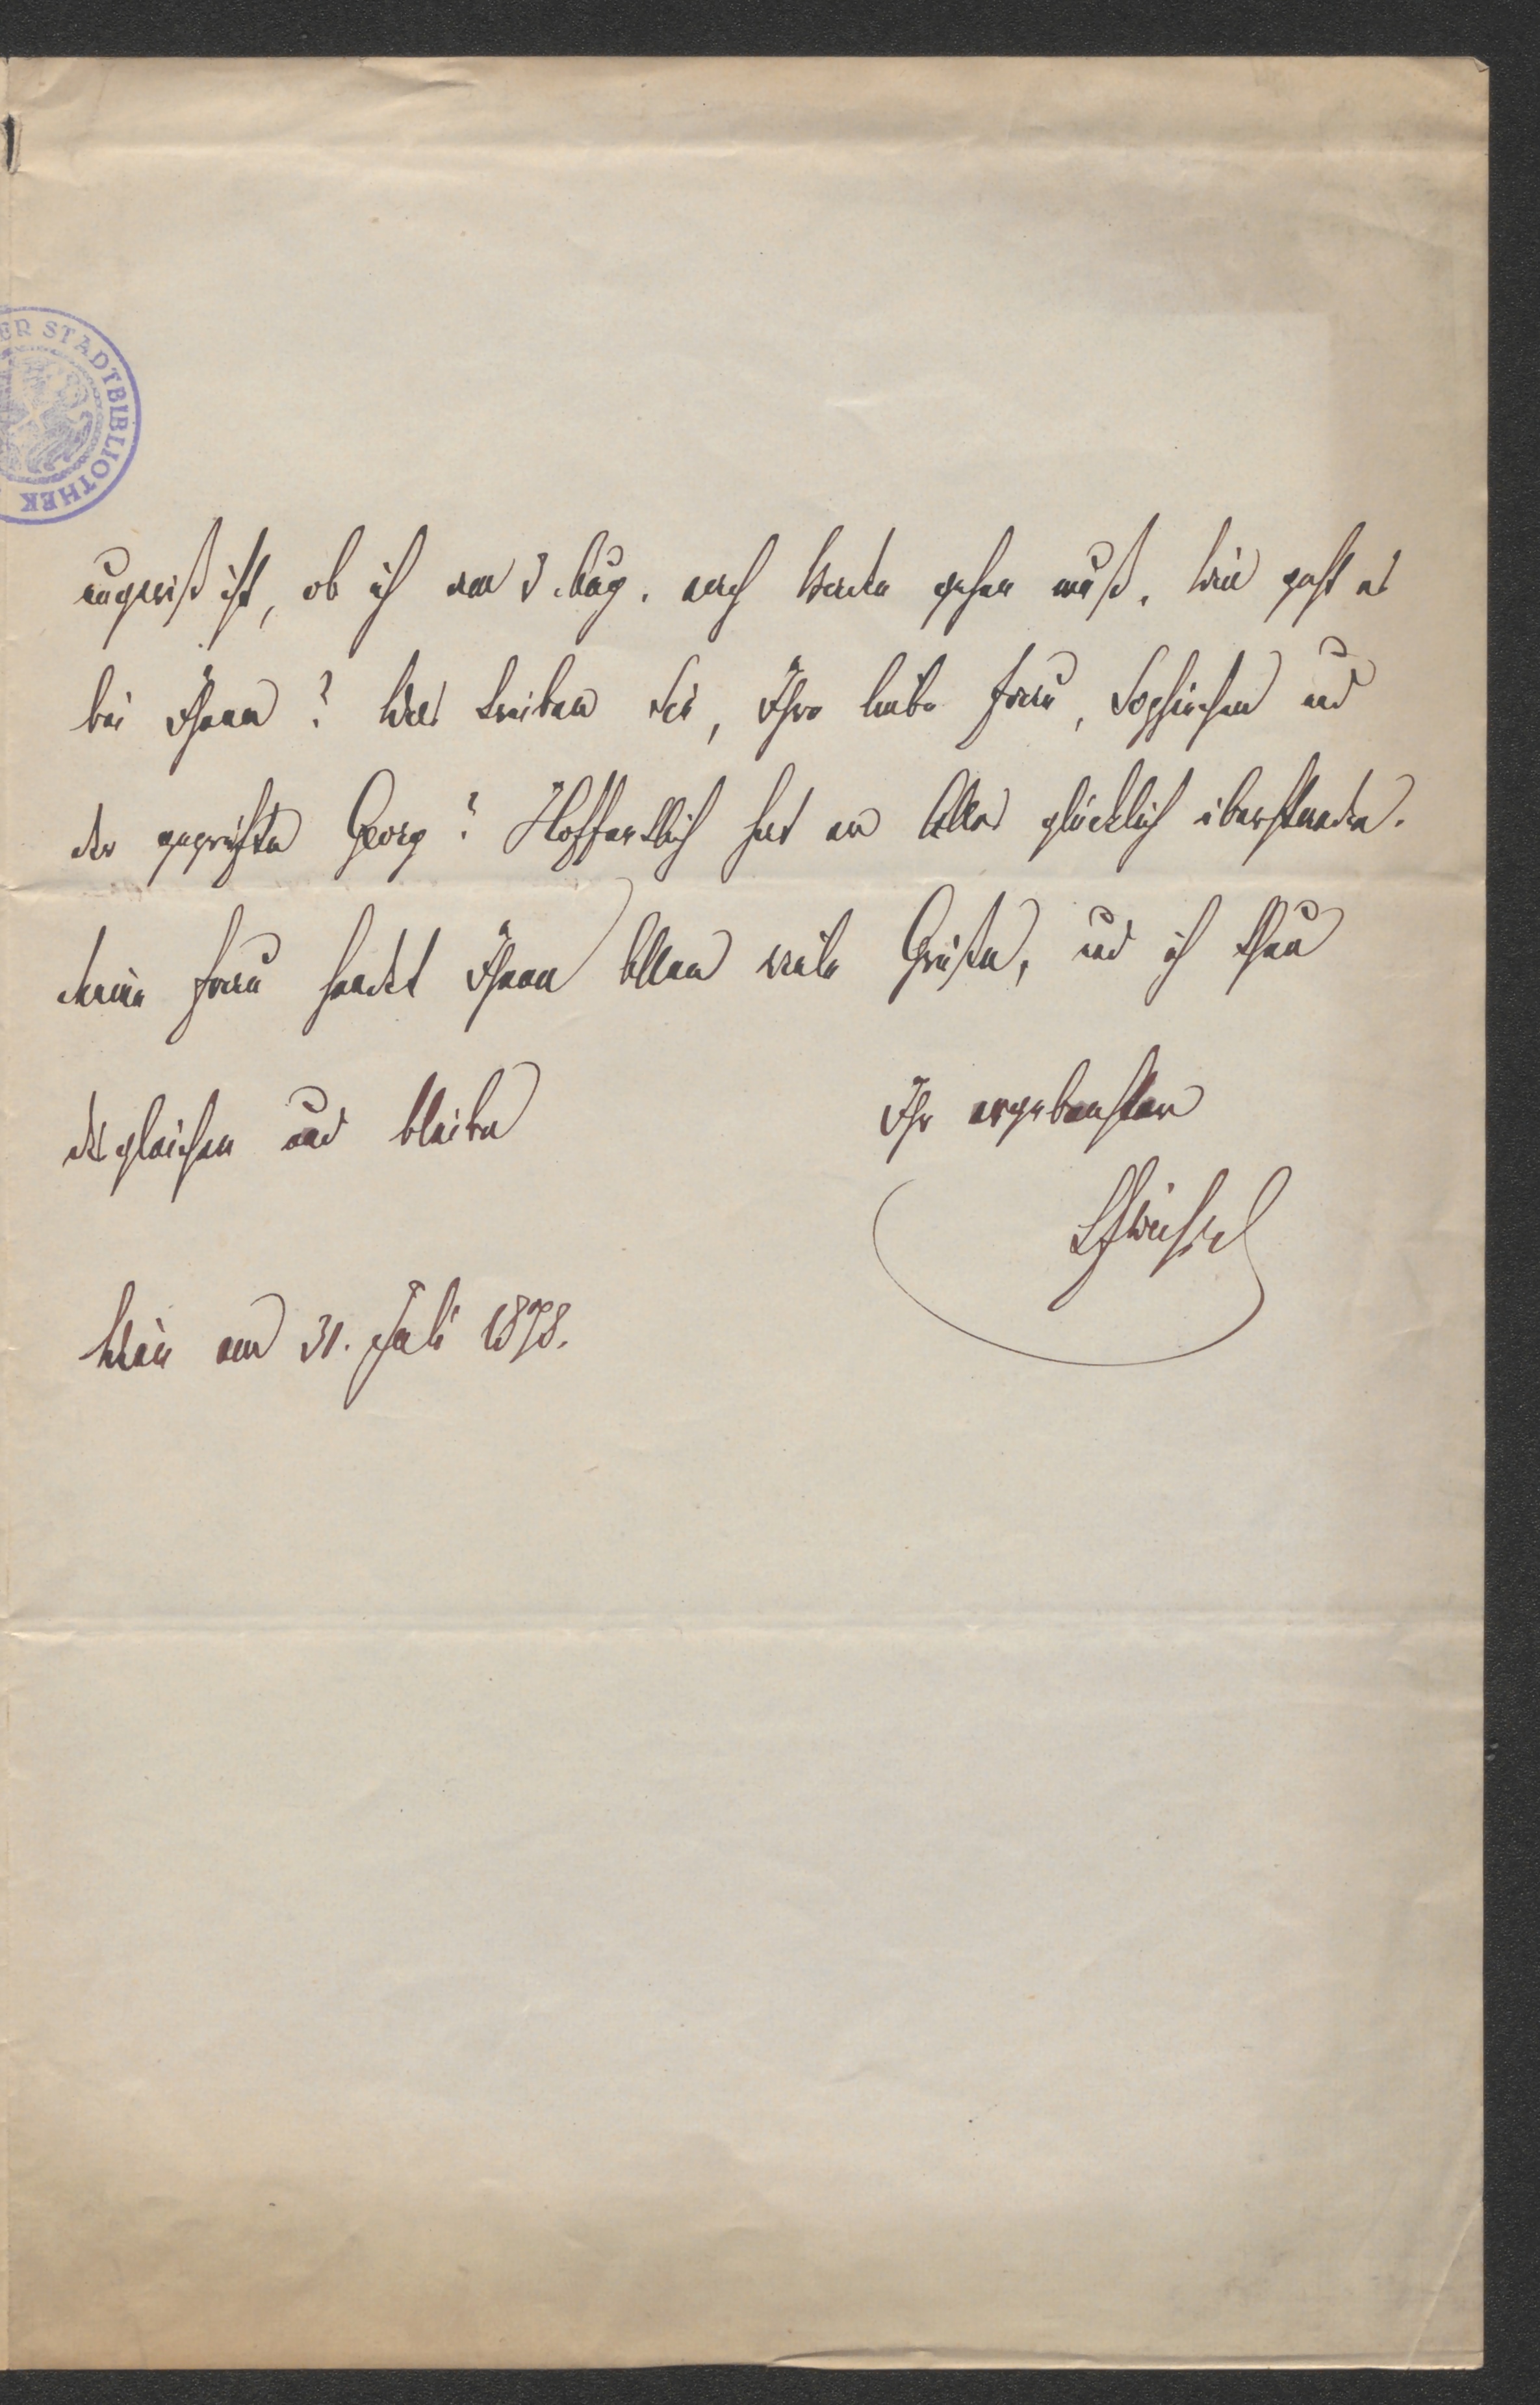 ER STADTBIBLIOTHEK
ungewiß ist, ob ich am 3. Aug. nach Baden gehen muß. Wie geht es
bei Ihnen? Was treiben Sie, Ihre liebe Frau, Sophiechen und
der geprüfte Georg? Hoffentlich hat er Alles glücklich überstanden.
Meine Frau sendet Ihnen Allen viele Grüße, und ich thue
desgleichen und bleibe
Ihr ergebenster
Wien am 31. Juli 1878.